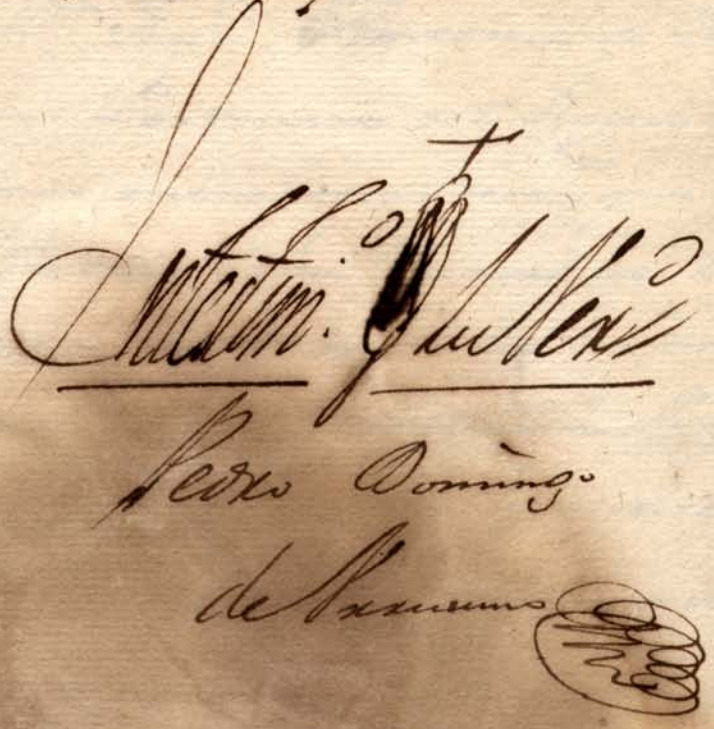 En testim.º de Verd
Pedro Domingo
de